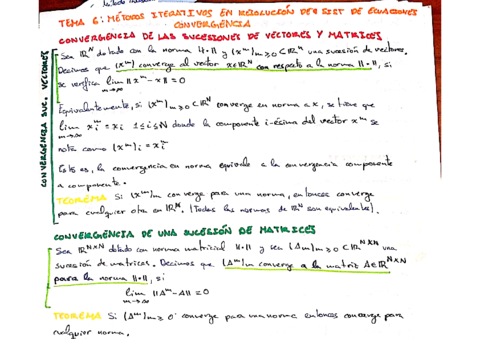 TEMA 6: MÉTODOS ITERATIVOS EN RESOLUCIÓN DE SIST DE ECUACIONES
CONVERGENCIA
CONVERGENCIA DE LAS SUCESIONES DE VECTORES Y MATRICES
CONVERGENCIA SUC. VECTORES
Sea ℝᴺ dotado con la norma ‖·‖ y (xᵐ)m≥0 ⊂ ℝᴺ una sucesión de vectores.
Decimos que (xᵐ) converge al vector x∈ℝᴺ con respecto a la norma ‖·‖, si
se verifica lim ‖xᵐ - x‖ = 0
m→∞
Equivalentemente, si (xᵐ)m≥0 ⊂ ℝᴺ converge en norma a x, se tiene que
lim xᵢᵐ = xᵢ 1≤i≤N donde la componente i-ésima del vector xᵐ se
m→∞
nota como (xᵐ)ᵢ = xᵢᵐ
Esto es, la convergencia en norma equivale a la convergencia componente
a componente.
TEOREMA Si (xᵐ)m converge para una norma, entonces converge
para cualquier otra en ℝᴺ. (Todas las normas de ℝᴺ son equivalentes).
CONVERGENCIA DE UNA SUCESIÓN DE MATRICES
Sea ℝᴺˣᴺ dotado con norma matricial ‖·‖ y sea (Aᵐ)m≥0 ⊂ ℝᴺˣᴺ una
sucesión de matrices. Decimos que (Aᵐ)m converge a la matriz A∈ℝᴺˣᴺ
para la norma ‖·‖, si
lim ‖Aᵐ - A‖ = 0
m→∞
TEOREMA Si (Aᵐ)m≥0 converge para una norma entonces converge para
cualquier norma.